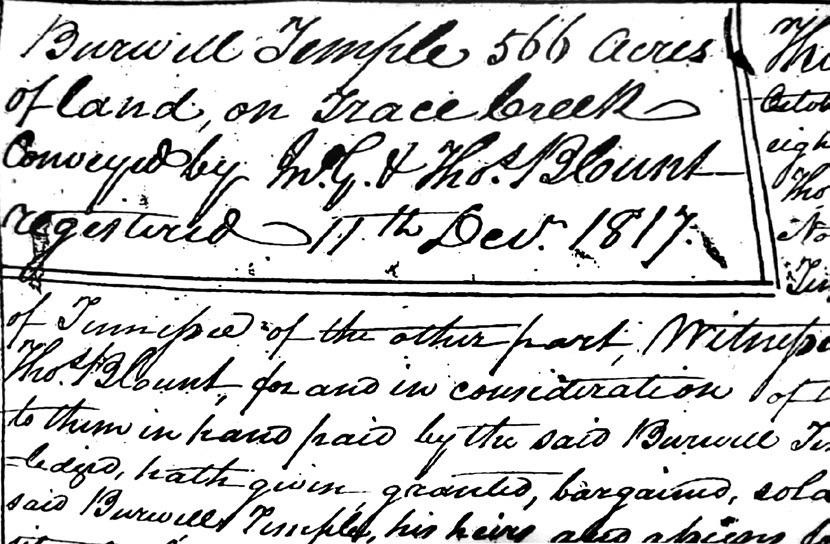 Burwell Temple 566 Acres
of land, on Trace Creek
Conveyed by & Thos. Blount
registered 11th Decr. 1817.
Tho
Octob
eigh
Tho
No
Ten
of Tennessee of the other part, Witnesse
Thos. Blount, for and in consideration of t
to them in hand paid by the said Burwell Te
-ledged, hath given granted, bargained, sold
said Burwell Temple, his heirs and assigns fo